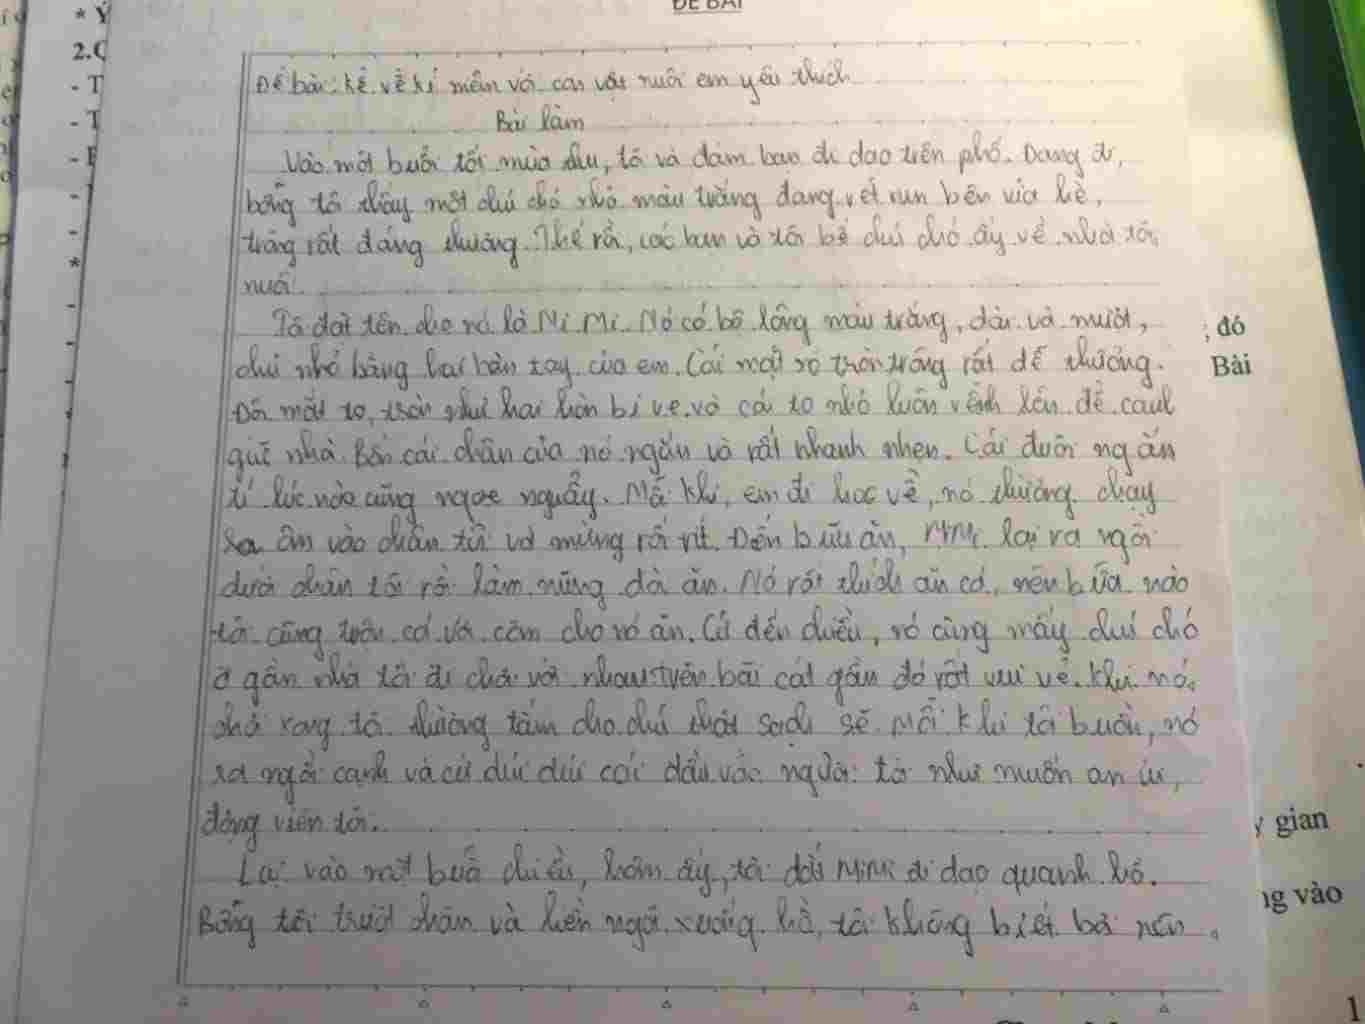 ĐỀ BÀI
* Ý
2.C
- T
- T
Đề bài: kể về kỉ niệm với con vật nuôi em yêu thích
Bài làm
Vào một buổi tối mùa thu, tôi và đám bạn đi dạo trên phố. Đang đi,
bỗng tôi thấy một chú chó nhỏ màu trắng đang rét run bên vỉa hè,
trông rất đáng thương. Thế rồi, các bạn và tôi bế chú chó ấy về nhà tôi
nuôi.
Tôi đặt tên cho nó là Mi Mi. Nó có bộ lông màu trắng, dài và mượt,
chú nhỏ bằng hai bàn tay của em. Cái mặt nó tròn trông rất dễ thương.
Đôi mắt to, tròn như hai hòn bi ve và cái to nhỏ luôn vểnh lên để canh
giữ nhà. Bốn cái chân của nó ngắn và rất nhanh nhẹn. Cái đuôi ngắn
tí lúc nào cũng ngoe nguẩy. Mỗi khi, em đi học về, nó thường chạy
ra ôm vào chân tôi vờ mừng rối rít. Đến bữa ăn, MiMi lại ra ngồi
dưới chân tôi rồi làm nũng đòi ăn. Nó rất thích ăn cá, nên bữa nào
tôi cũng trộn cá với cơm cho nó ăn. Cứ đến chiều, nó cùng mấy chú chó
ở gần nhà tôi đi chơi với nhau trên bãi cát gần đó rất vui vẻ. Khi nó
chơi xong tôi thường tắm cho chú thật sạch sẽ. Mỗi khi tôi buồn, nó
ra ngồi cạnh và cứ dúi dúi cái đầu vào người tôi như muốn an ủi,
động viên tôi.
Lại vào một buổi chiều, hôm ấy, tôi dắt MiMi đi dạo quanh hồ.
Bỗng tôi trượt chân và liền ngã xuống hồ, tôi không biết bơi nên
, đó
Bài
gian
ng vào
1